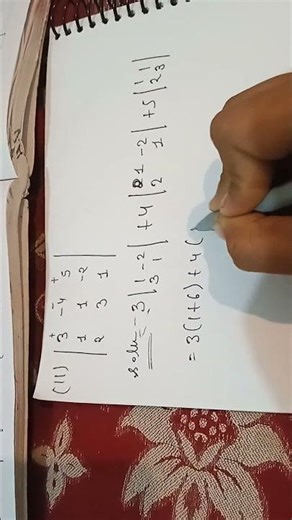 (11)
+ - +
| 3 -4 5 |
| 1 1 -2 |
| 2 3 1 |
Soln- 3 | 1 -2 | + 4 | 1 -2 | + 5 | 1 1 |
| 3 1 | | 2 1 | | 2 3 |
= 3(1+6)+4(